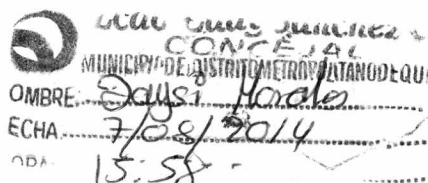 CONCEJAL
MUNICIPIO DE DISTRITO METROPOLITANO DE QU
OMBRE: Daysi Morales
ECHA 7/08/2014
ORA: 15:58